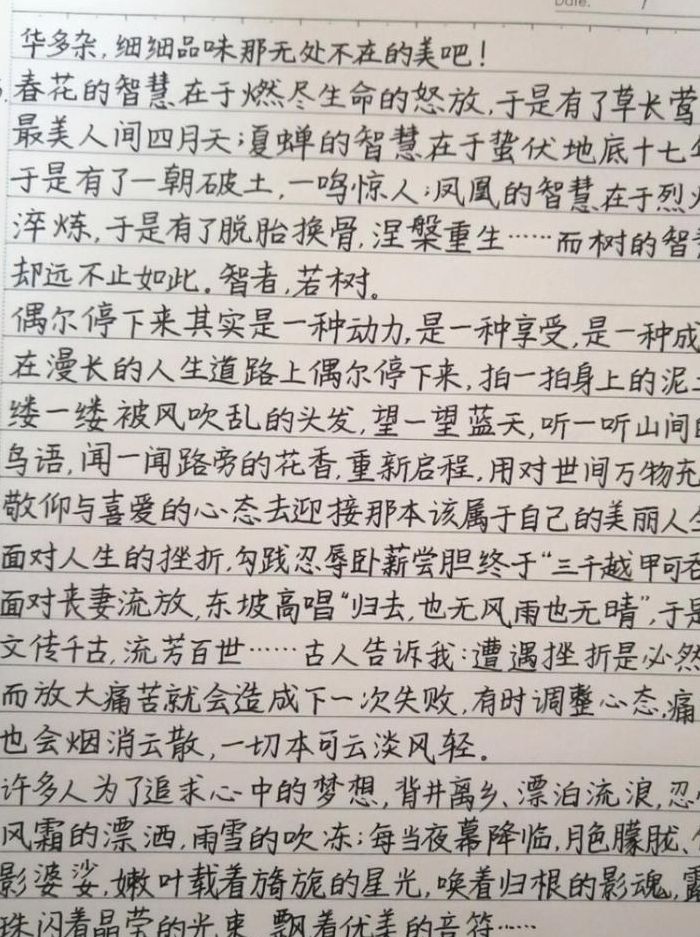 Date. /
华多杂,细细品味那无处不在的美吧!
春花的智慧在于燃尽生命的怒放,于是有了草长莺
最美人间四月天;夏蝉的智慧在于蛰伏地底十七
于是有了一朝破土,一鸣惊人;凤凰的智慧在于烈
淬炼,于是有了脱胎换骨,涅槃重生……而树的智
却远不止如此。智者,若树。
偶尔停下来其实是一种动力,是一种享受,是一种成
在漫长的人生道路上偶尔停下来,拍一拍身上的泥
缕一缕被风吹乱的头发,望一望蓝天,听一听山间
鸟语,闻一闻路旁的花香,重新启程,用对世间万物充
敬仰与喜爱的心态去迎接那本该属于自己的美丽人
面对人生的挫折,勾践忍辱卧薪尝胆终于“三千越甲可
面对丧妻流放,东坡高唱“归去,也无风雨也无晴”,于是
文传千古,流芳百世……古人告诉我:遭遇挫折是必然
而放大痛苦就会造成下一次失败,有时调整心态,痛
也会烟消云散,一切本可云淡风轻。
许多人为了追求心中的梦想,背井离乡、漂泊流浪,忍
风霜的漂洒,雨雪的吹冻;每当夜幕降临,月色朦胧、
影婆娑,嫩叶载着旖旎的星光,唤着归根的影魂,露
珠闪着晶莹的光束,飘着优美的音符……